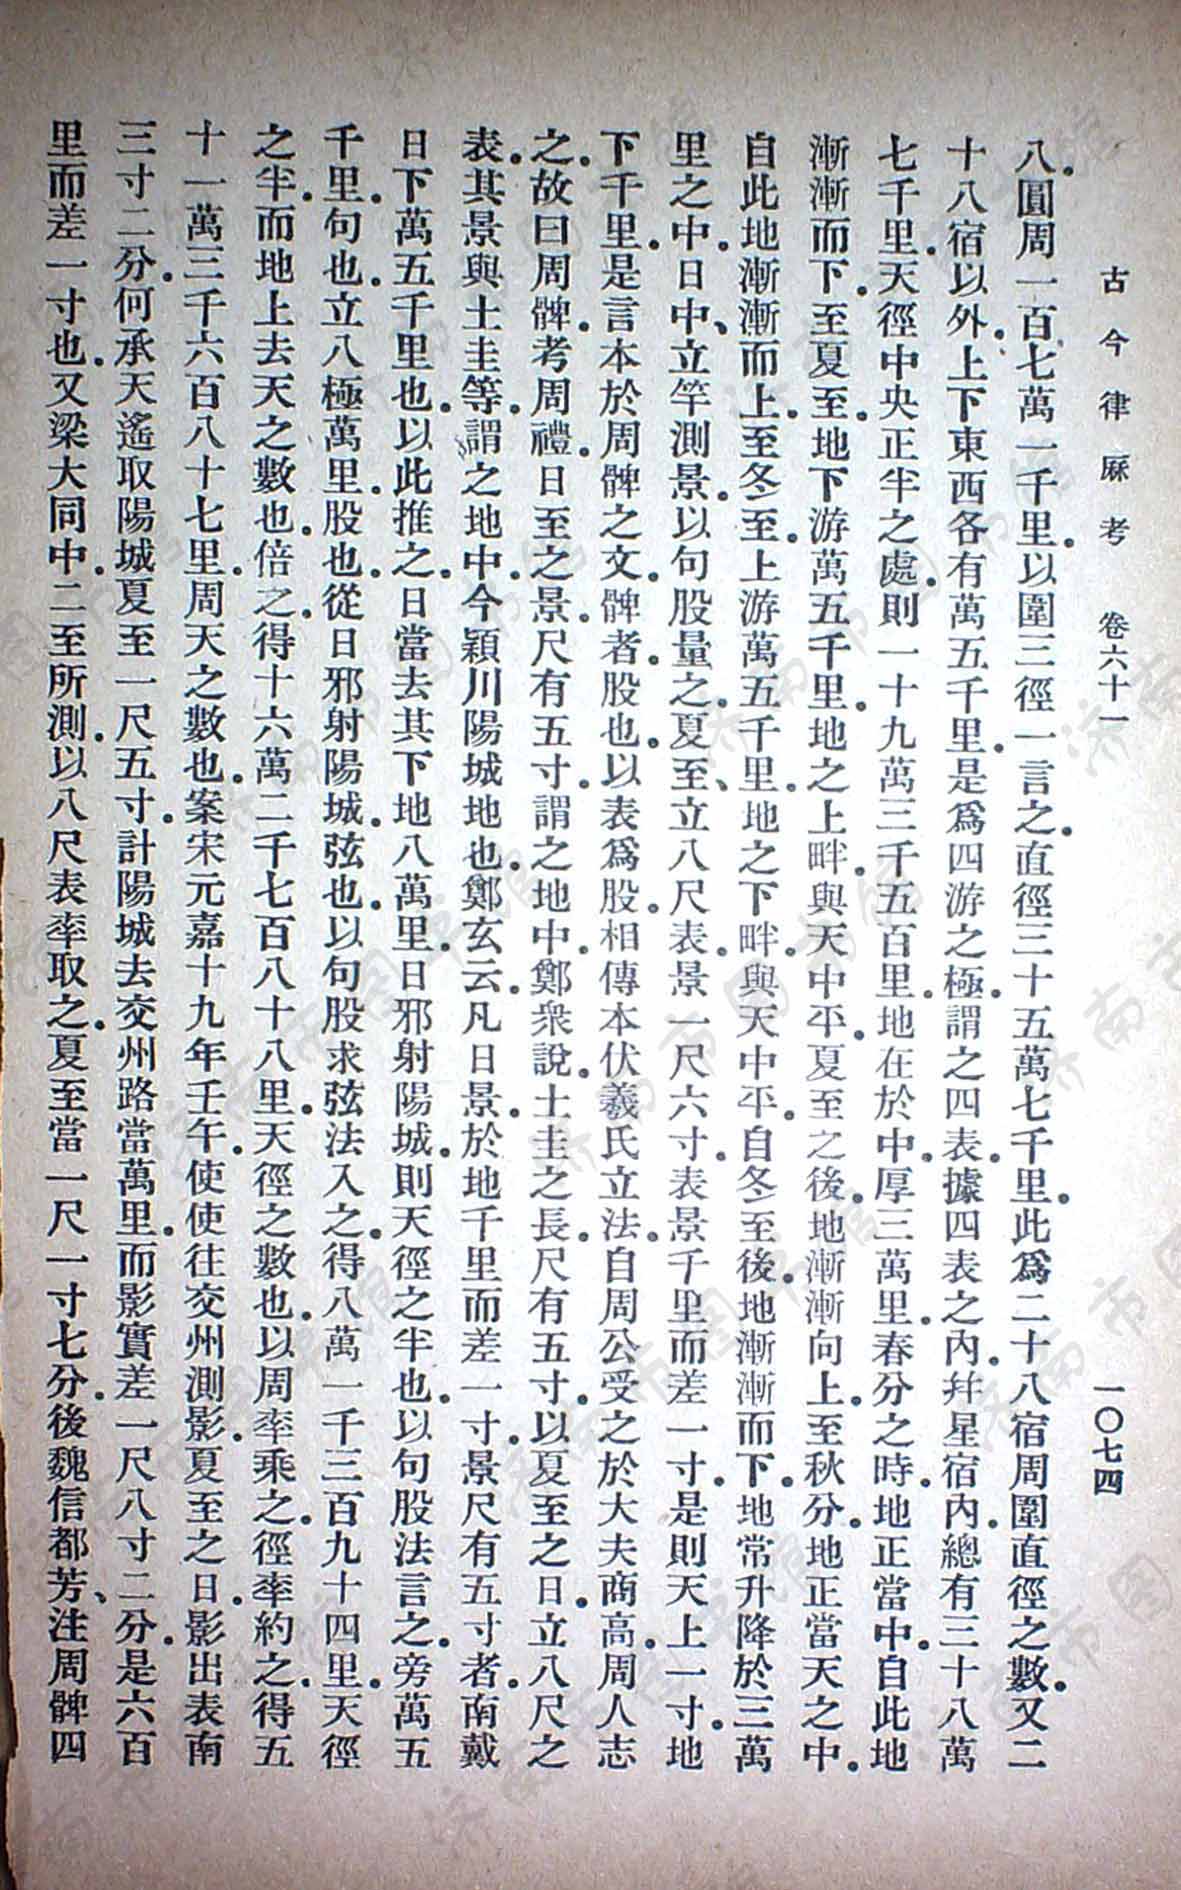 古今律厤考　卷六十一　一〇七四
八圓周一百七萬一千里以圍三徑一言之直徑三十五萬七千里此爲二十八宿周圍直徑之數又二
十八宿以外上下東西各有萬五千里是爲四游之極謂之四表據四表之內幷星宿內總有三十八萬
七千里天徑中央正半之處則一十九萬三千五百里地在於中厚三萬里春分之時地正當中自此地
漸漸而下至夏至地下游萬五千里地之上畔與天中平夏至之後地漸漸向上至秋分地正當天之中
自此地漸漸而上至冬至上游萬五千里地之下畔與天中平自冬至後地漸漸而下地常升降於三萬
里之中日中立竿測景以句股量之夏至立八尺表景一尺六寸表景千里而差一寸是則天上一寸地
下千里是言本於周髀之文髀者股也以表爲股相傳本伏羲氏立法自周公受之於大夫商高周人志
之故曰周髀考周禮日至之景尺有五寸謂之地中鄭衆說土圭之長尺有五寸以夏至之日立八尺之
表其景與土圭等謂之地中今潁川陽城地也鄭玄云凡日景於地千里而差一寸景尺有五寸者南戴
日下萬五千里也以此推之日當去其下地八萬里日邪射陽城則天徑之半也以句股法言之旁萬五
千里句也立八極萬里股也從日邪射陽城弦也以句股求弦法入之得八萬一千三百九十四里天徑
之半而地上去天之數也倍之得十六萬二千七百八十八里天徑之數也以周率乘之徑率約之得五
十一萬三千六百八十七里周天之數也案宋元嘉十九年壬午使使往交州測影夏至之日影出表南
三寸二分何承天遙取陽城夏至一尺五寸計陽城去交州路當萬里而影實差一尺八寸二分是六百
里而差一寸也又梁大同中二至所測以八尺表率取之夏至當一尺一寸七分後魏信都芳注周髀四